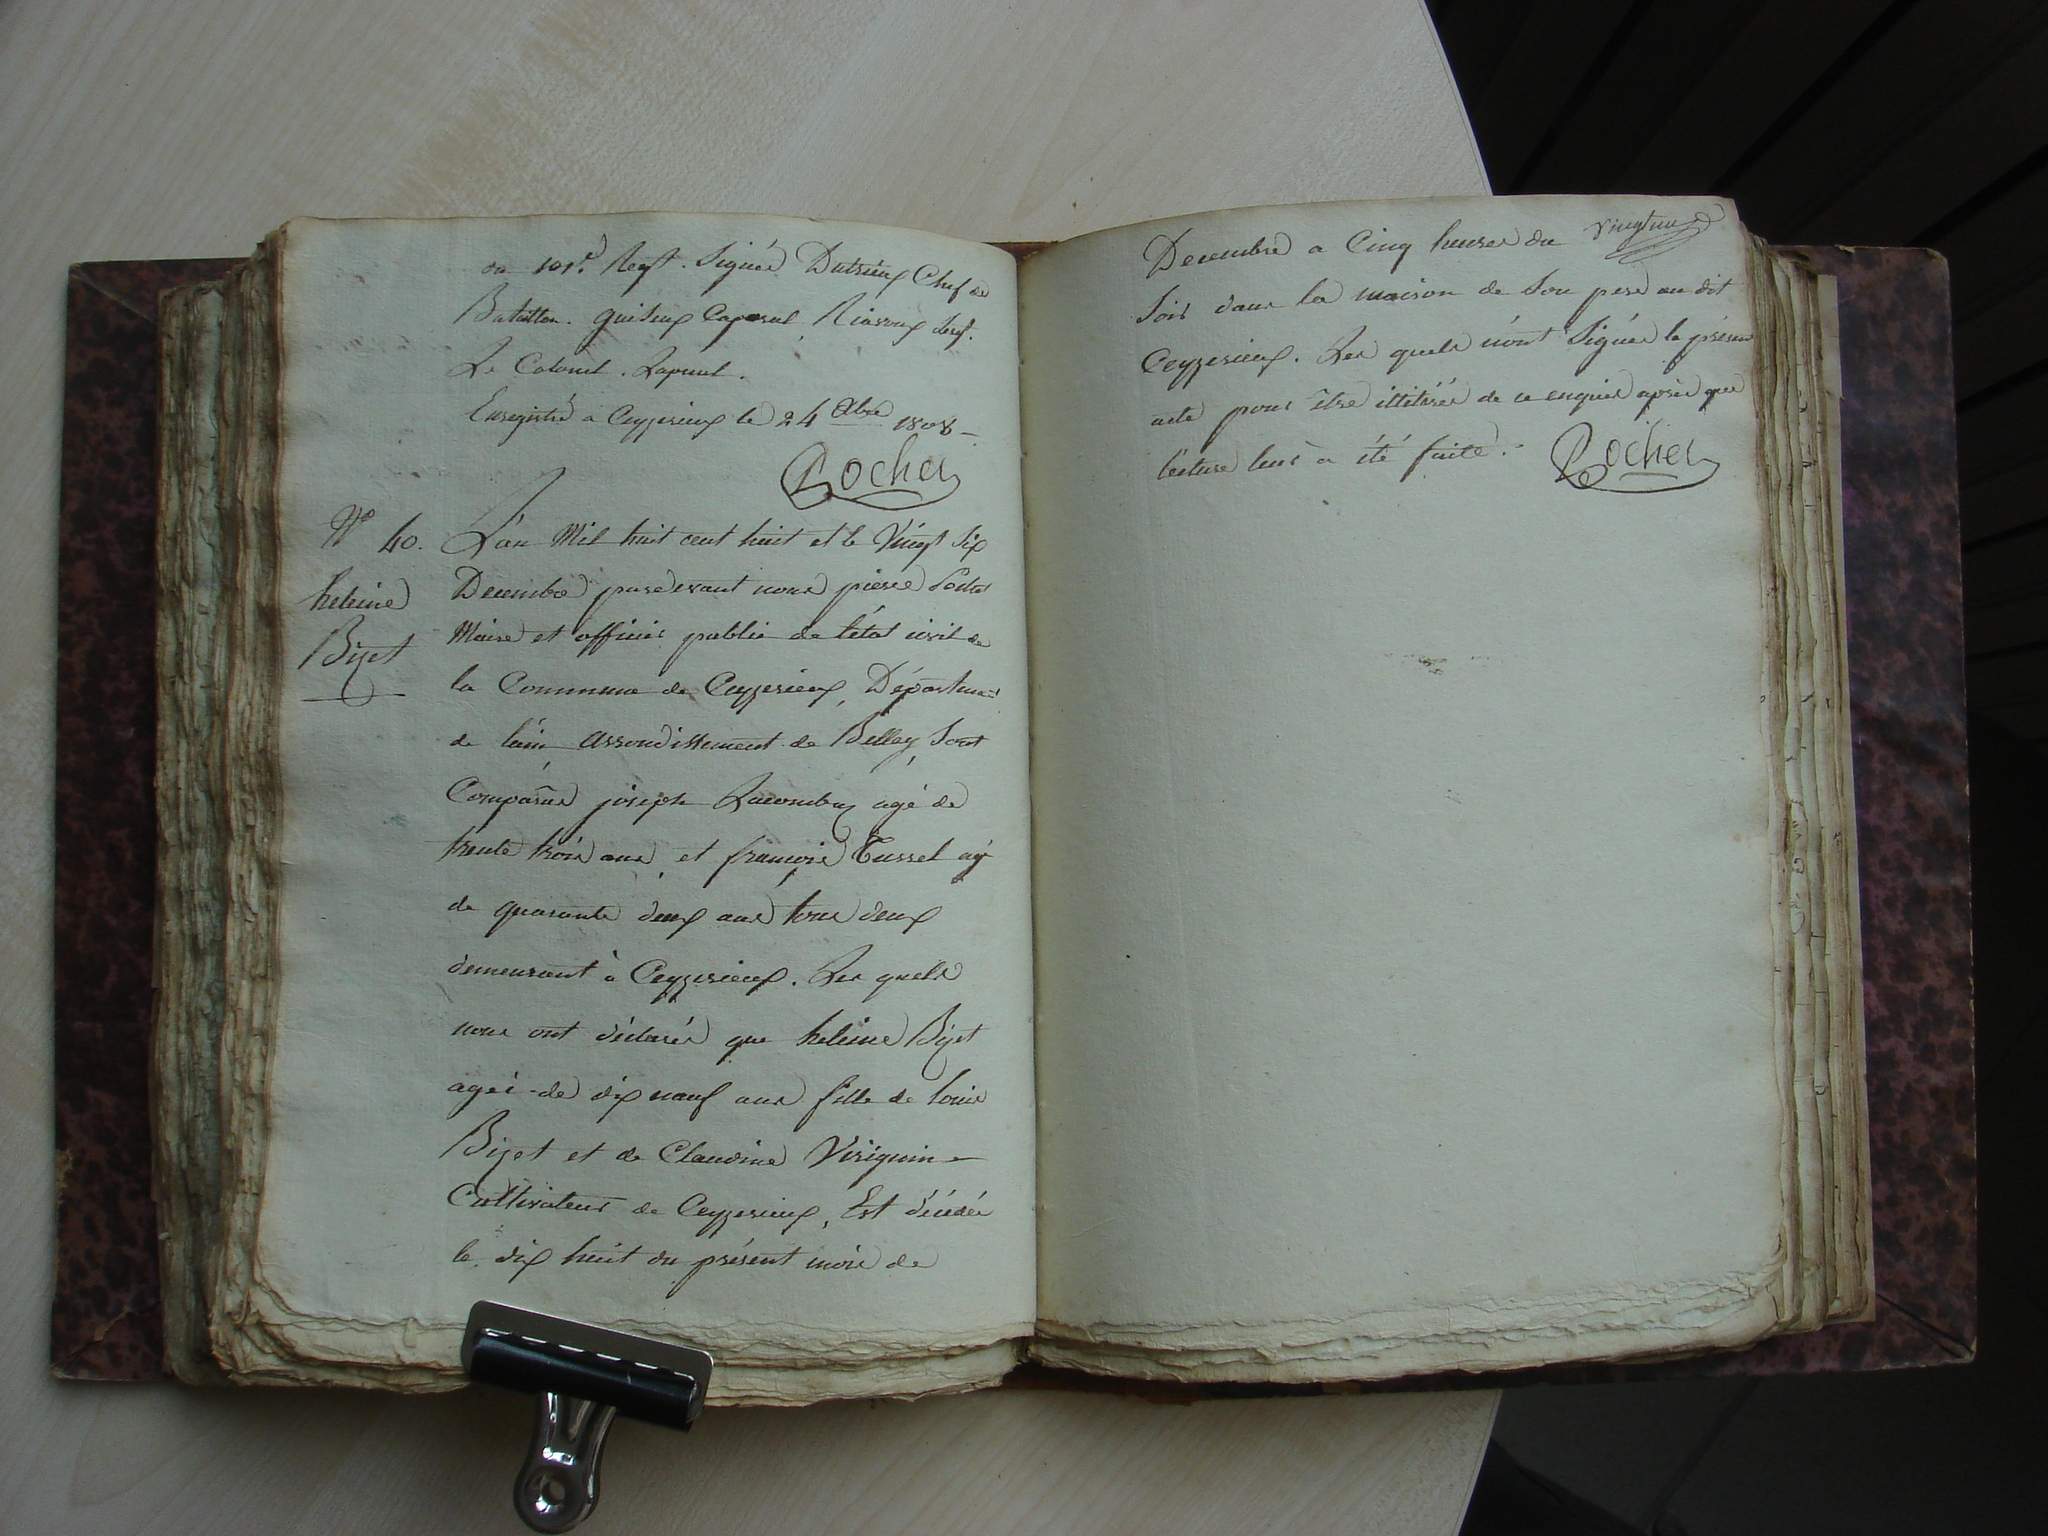 du 101.e Regt. Signés Dutrieux Chef de
Bataillon. Caporal,
Le Colonel.
Enregistré a Ceyzerieux le 24 Xbre 1808 -
Rocher
N° 40.
heleine
Bizet
L'an Mil huit cent huit et le Vingt Six
Decembre pardevant nous pierre Rocher
Maire et officier public de l'état civil de
la Commune de Ceyzerieux, Département
de l'ain, arrondissement de Belley, Sont
Comparus joseph age de
trente trois ans, et françois Tussel agé
de quarante deux ans tous deux
demeurant à Ceyzerieux. Les quels
nous ont déclarés que heleine Bizet
ageé de dix neuf ans fille de louis
Bizet et de Claudine Viriguin
Cultivateur de Ceyzerieux, Est décédée
le dix huit du présent mois de
Vingt un
Decembre a Cinq heures du
Soir dans la maison de Son pere au dit
Ceyzerieux. Les quels n'ont Signés le présent
acte pour être illitérés de ce enquis après que
lecture leur a été faite.
Rocher